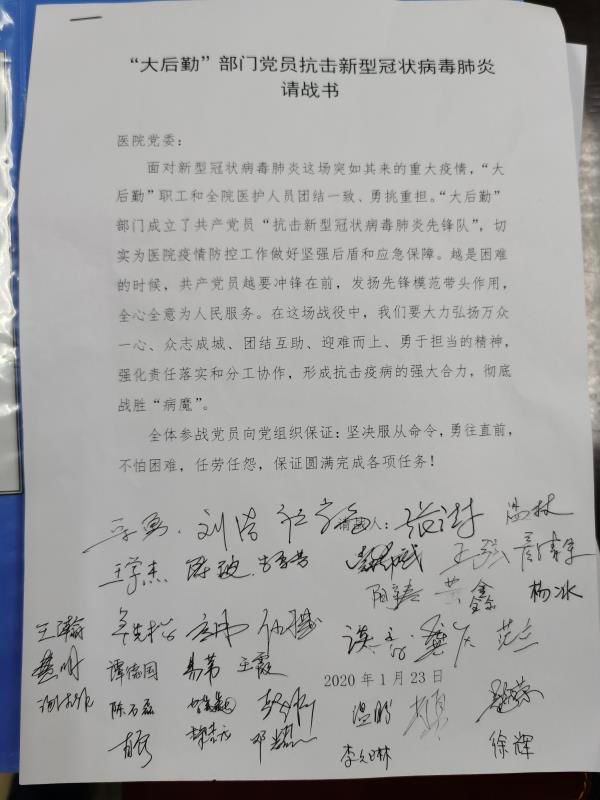 “大后勤”部门党员抗击新型冠状病毒肺炎
请战书
医院党委：
面对新型冠状病毒肺炎这场突如其来的重大疫情，“大
后勤”职工和全院医护人员团结一致、勇挑重担。“大后勤”
部门成立了共产党员“抗击新型冠状病毒肺炎先锋队”，切
实为医院疫情防控工作做好坚强后盾和应急保障。越是困难
的时候，共产党员越要冲锋在前，发扬先锋模范带头作用，
全心全意为人民服务。在这场战役中，我们要大力弘扬万众
一心、众志成城、团结互助、迎难而上、勇于担当的精神，
强化责任落实和分工协作，形成抗击疫病的强大合力，彻底
战胜“病魔”。
全体参战党员向党组织保证：坚决服从命令，勇往直前，
不怕困难，任劳任怨，保证圆满完成各项任务！
刘浩 人：
王学杰 王强
黄鑫 杨冰
谭德国 易第 王霞
2020年1月23日
陈万磊 温鹏
邓耀 徐辉